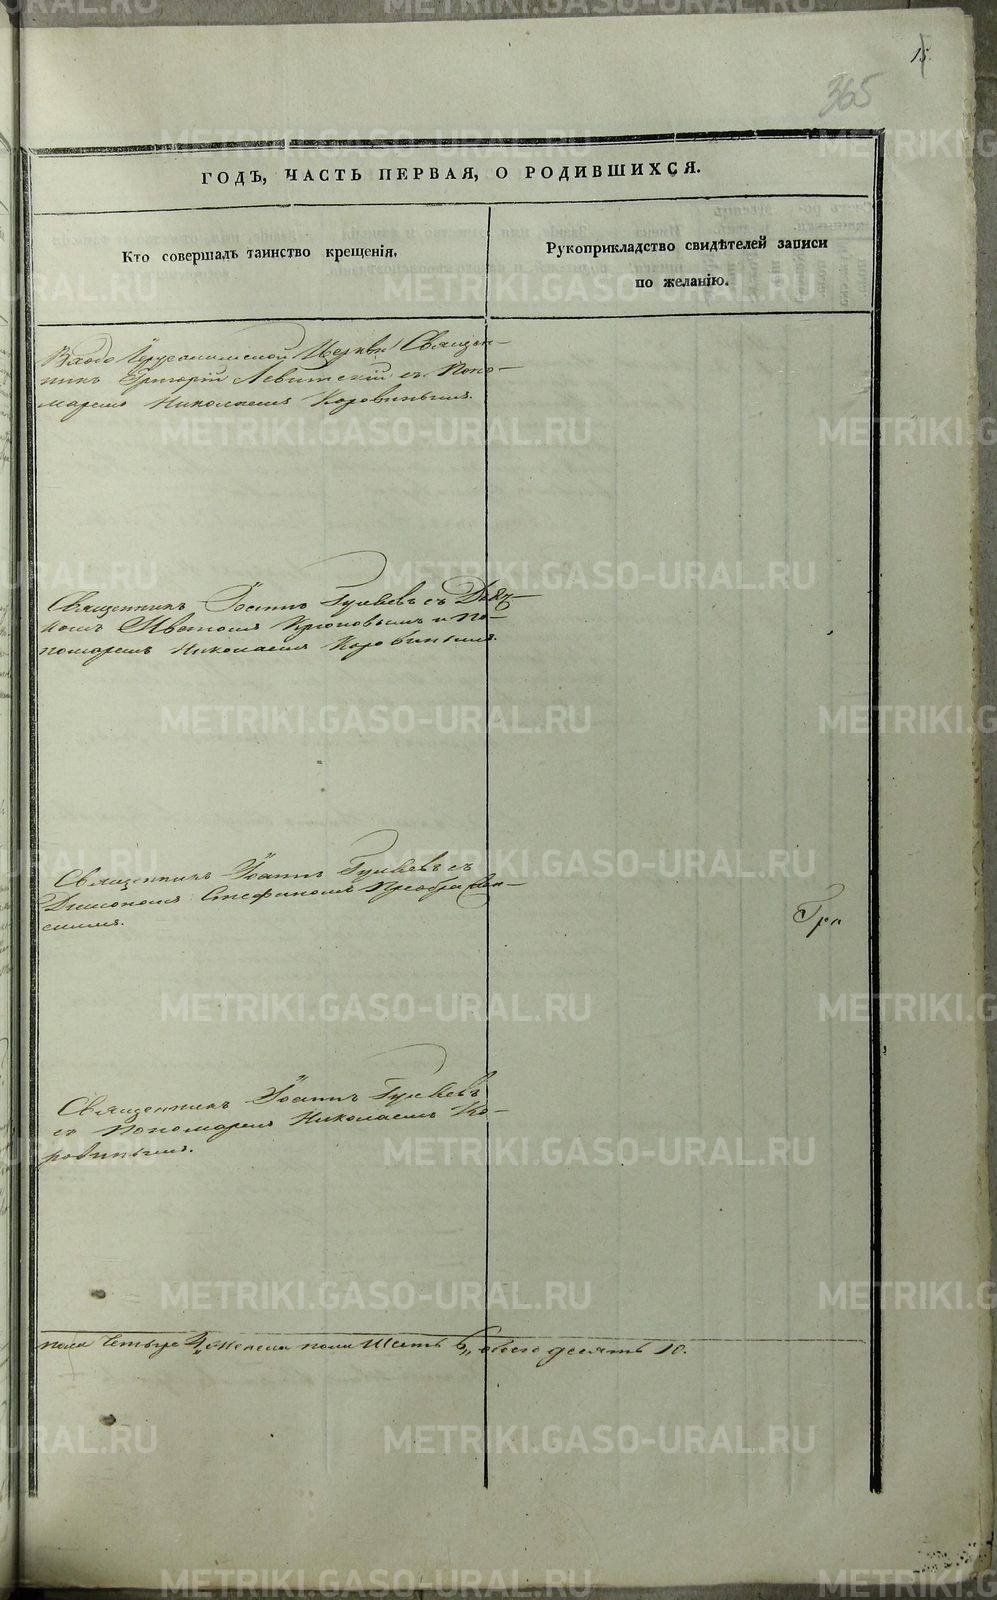 15
365
ГОДЪ, ЧАСТЬ ПЕРВАЯ, О РОДИВШИХСЯ.
Кто совершалъ таинство крещенія.
Рукоприкладство свидѣтелей записи
по желанію.
Входо Іерусалимской Церкви Священ-
никъ Григорій Левитскій съ Поно-
маремъ Николаемъ Коровинымъ.
Священникъ Іоаннъ Гуляевъ съ Дьяч-
комъ Крюковымъ и По-
номаремъ Николаемъ Коровинымъ.
Священникъ Іоаннъ Гуляевъ съ
Діакономъ Стефаномъ Преображен-
скимъ.
Гра
Священникъ Іоаннъ Гуляевъ
съ Пономаремъ Николаемъ Ко-
ровинымъ.
пола Четыре 4, Женска пола Шесть 6, обоего десять 10.
METRIKI.GASO-URAL.RU